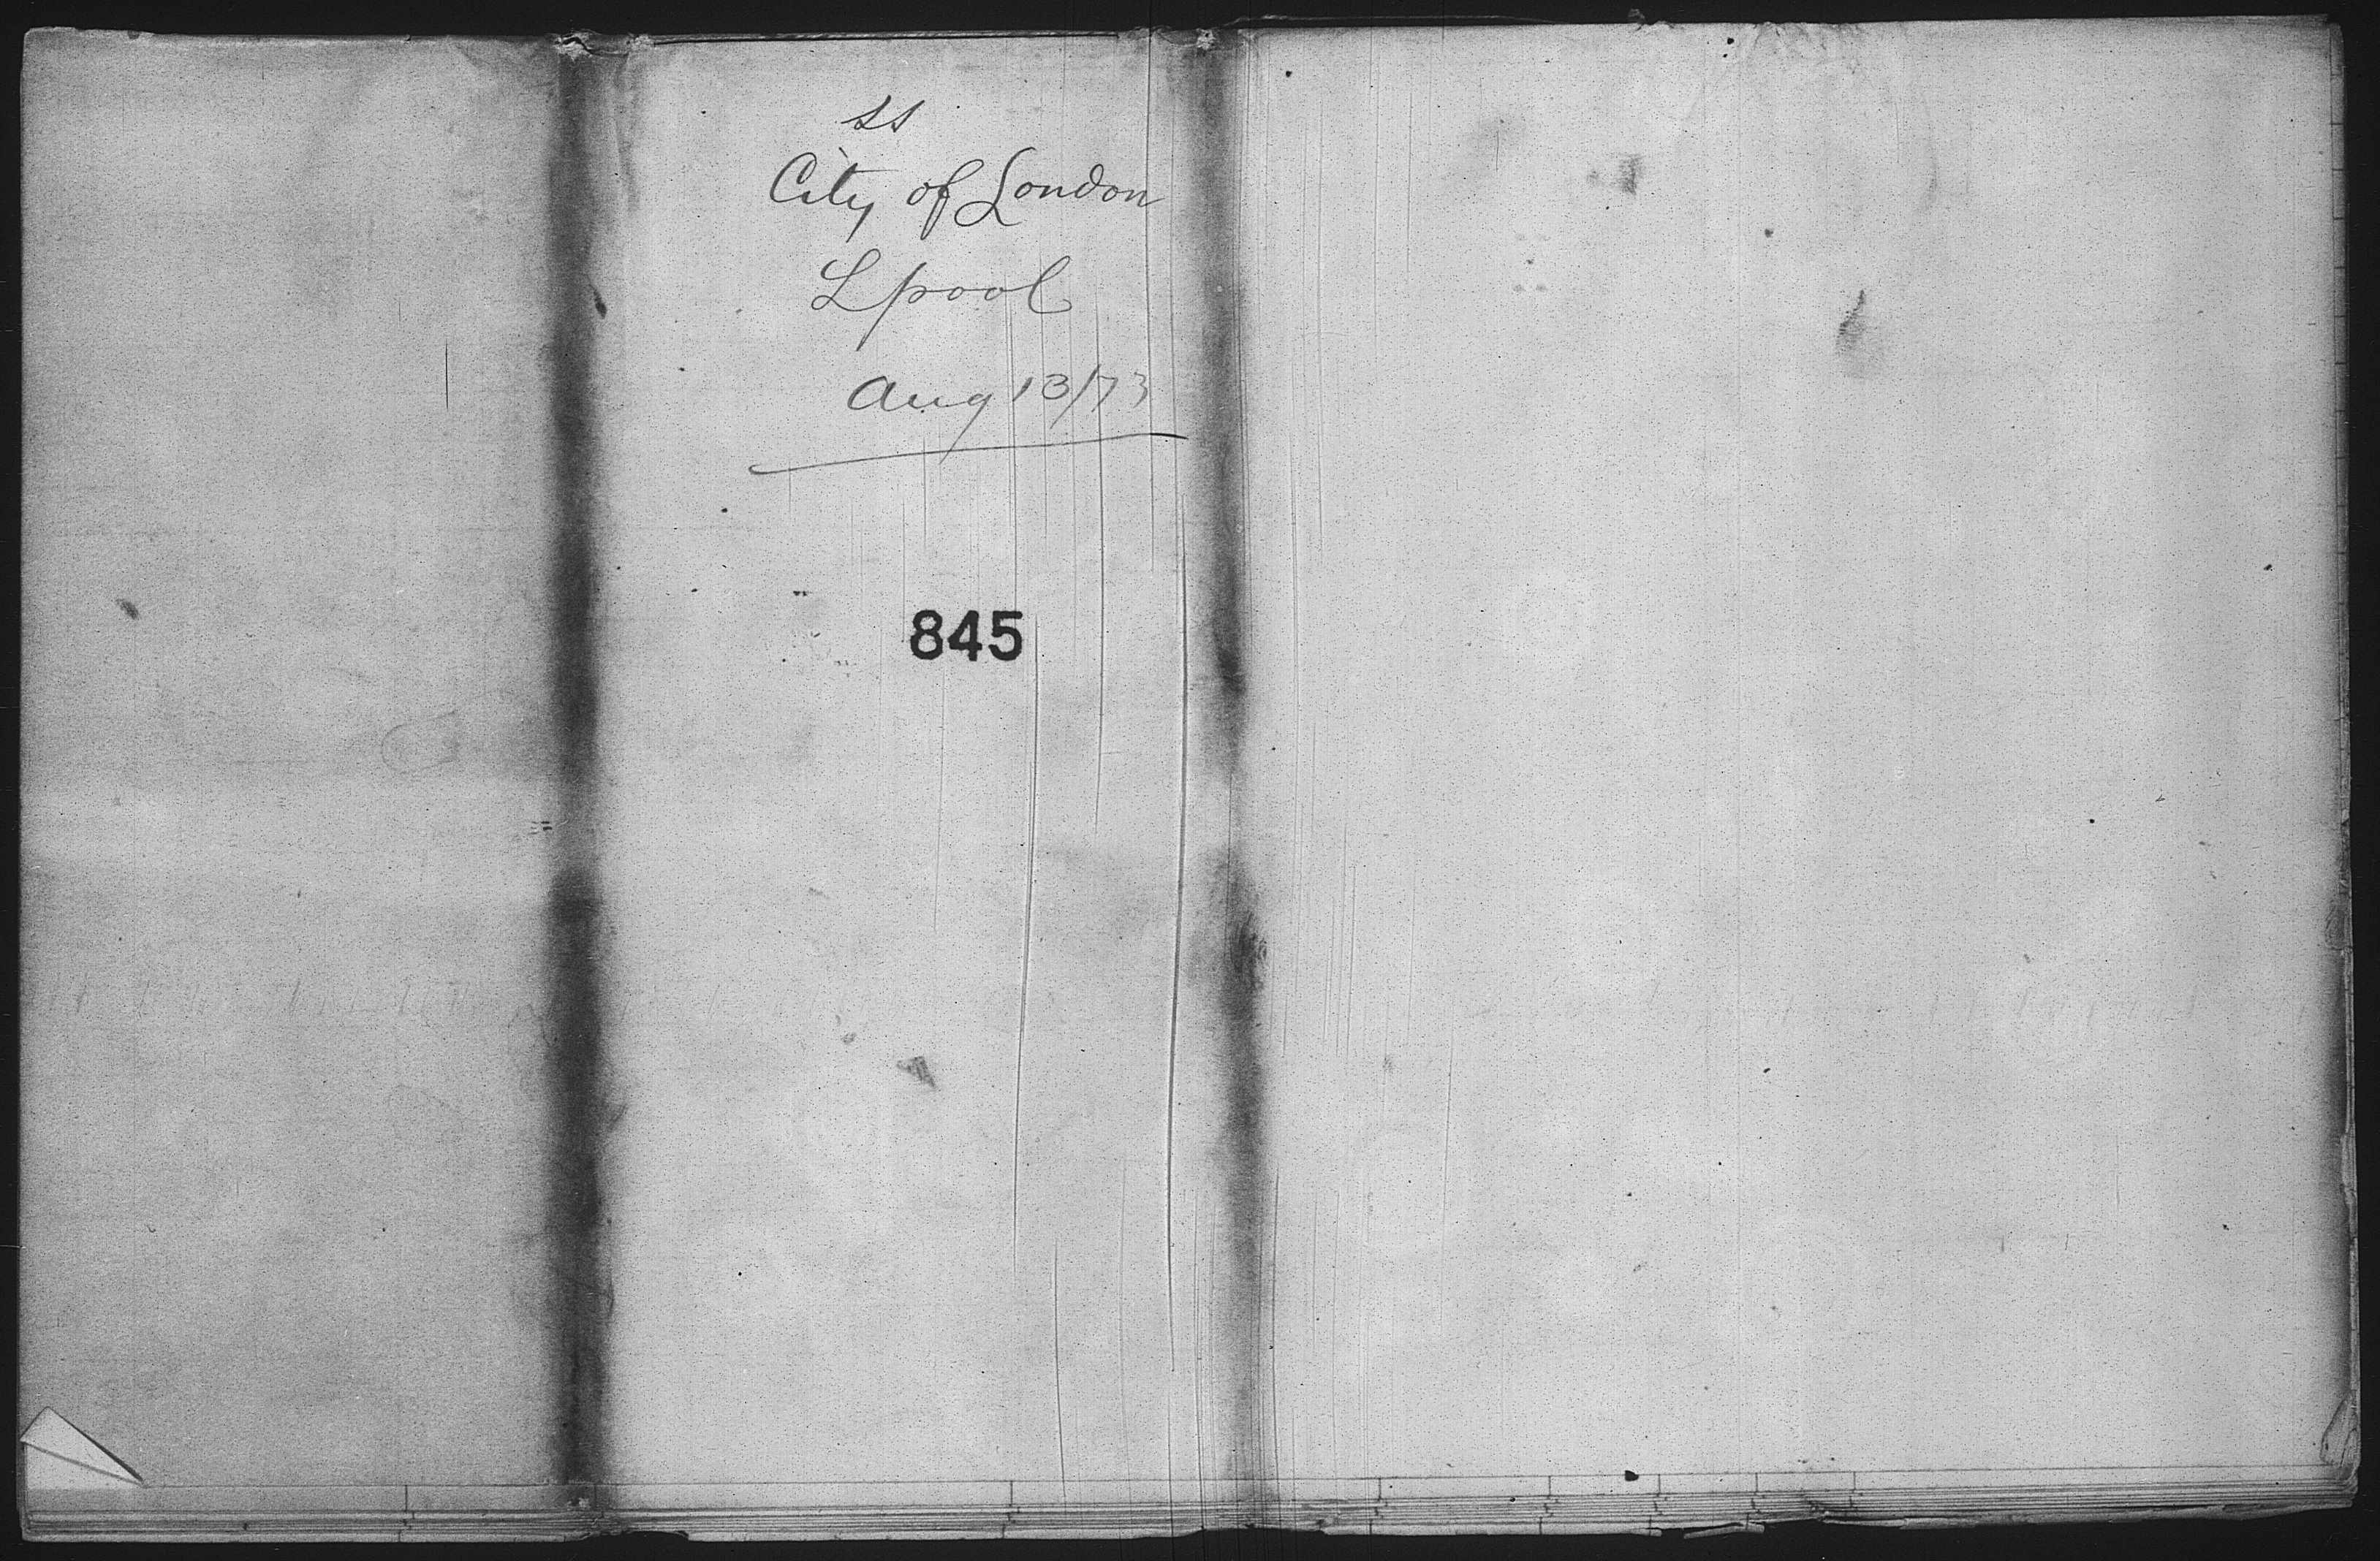 SS
City of London
Lpool
Aug 13/73
845